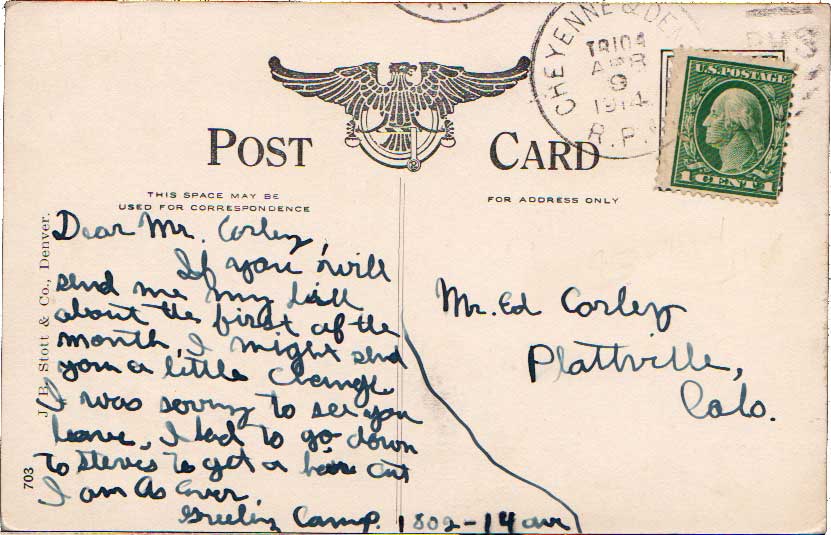 CHEYENNE & DEN
TR104
APR
9
1914
R.P.
U.S. POSTAGE
1 CENT 1
POST CARD
THIS SPACE MAY BE
USED FOR CORRESPONDENCE
FOR ADDRESS ONLY
J. B. Stott & Co., Denver.
703
Dear Mr. Corley,
If you will
send me my bill
about the first of the
month, I might send
you a little change.
I was sorry to see you
leave, I had to go down
to Steves to get a hair cut
I am As Ever,
Greeley Camp. 1802-14 ave
Mr. Ed Corley
Plattville,
Colo.